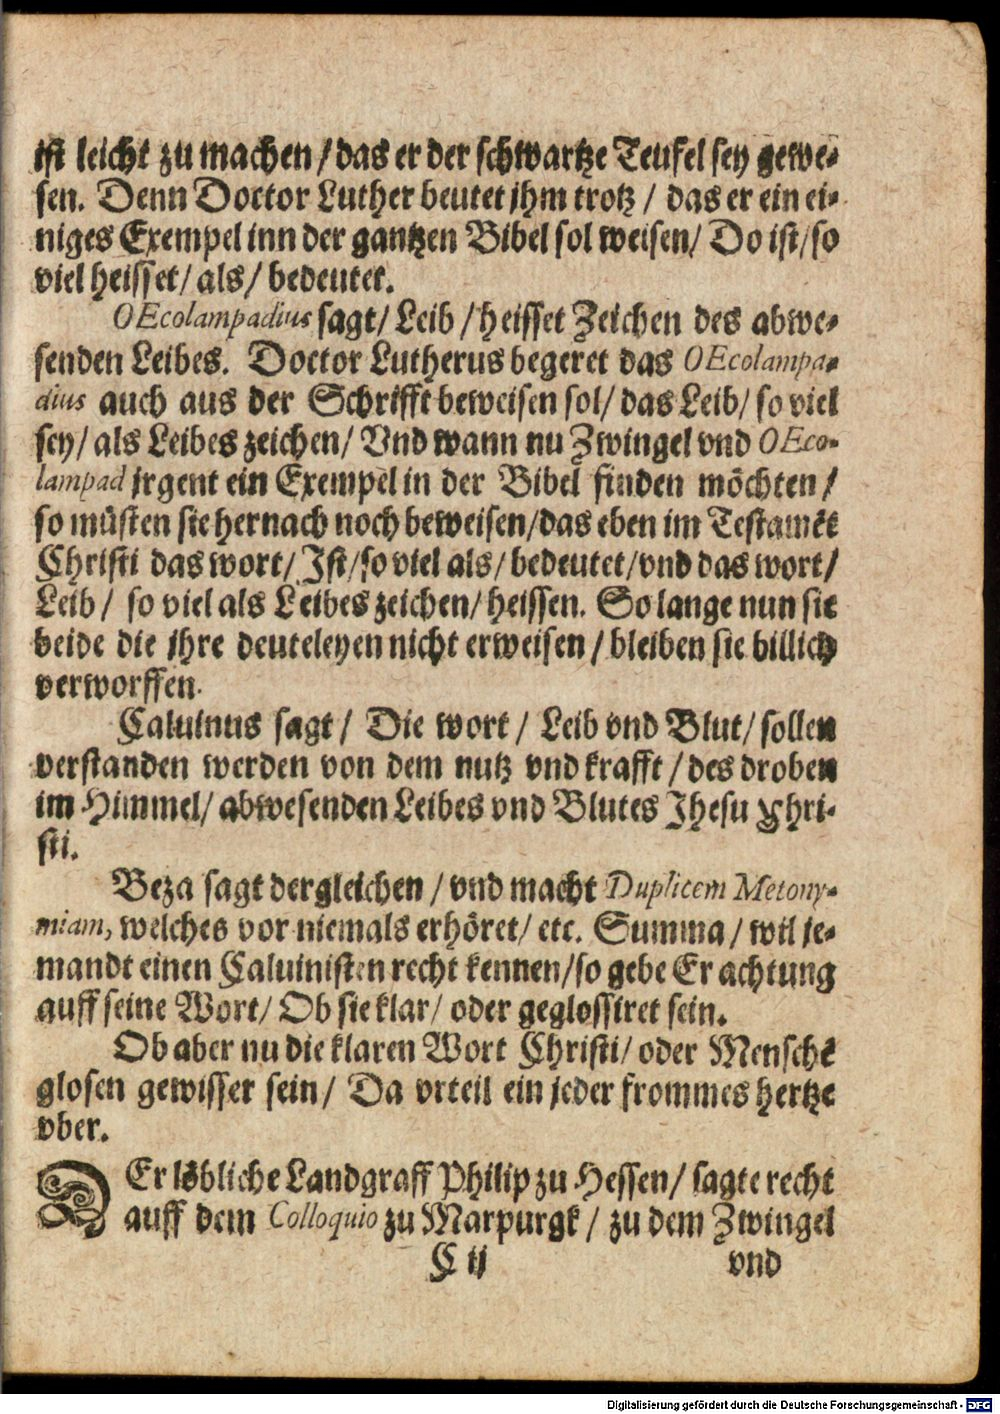 ist leicht zu machen / das er der schwartze Teufel sey gewe-
sen. Denn Doctor Luther beutet jhm trotz / das er ein ei-
niges Exempel inn der gantzen Bibel sol weisen / Do ist / so
viel heisset / als / bedeutet.
OEcolampadius sagt / Leib / heisset Zeichen des abwe-
senden Leibes. Doctor Lutherus begeret das OEcolampa-
dius auch aus der Schrifft beweisen sol / das Leib / so viel
sey / als Leibes zeichen / Vnd wann nu Zwingel vnd OEco-
lampad jrgent ein Exempel in der Bibel finden möchten /
so müsten sie hernach noch beweisen / das eben im Testamēt
Christi das wort / Ist / so viel als / bedeutet / vnd das wort /
Leib / so viel als Leibes zeichen / heissen. So lange nun sie
beide die jhre deuteleyen nicht erweisen / bleiben sie billich
verworffen.
Caluinus sagt / Die wort / Leib vnd Blut / sollen
verstanden werden von dem nutz vnd krafft / des droben
im Himmel / abwesenden Leibes vnd Blutes Jhesu Chri-
sti.
Beza sagt dergleichen / vnd macht Duplicem Metony-
miam, welches vor niemals erhöret / etc. Summa / wil je-
mandt einen Caluinisten recht kennen / so gebe Er achtung
auff seine Wort / Ob sie klar / oder geglossiret sein.
Ob aber nu die klaren Wort Christi / oder Menschē
glosen gewisser sein / Da vrteil ein jeder frommes hertze
vber.
DEr löbliche Landgraff Philip zu Hessen / sagte recht
auff dem Colloquio zu Marpurgk / zu dem Zwingel
C ij vnd
Digitalisierung gefördert durch die Deutsche Forschungsgemeinschaft - DFG